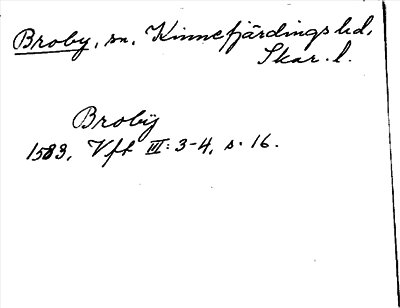 Broby, sn, Kinnefjärdings hd,
Skar. l.
Broby
1583, Vft III: 3-4, s. 16.